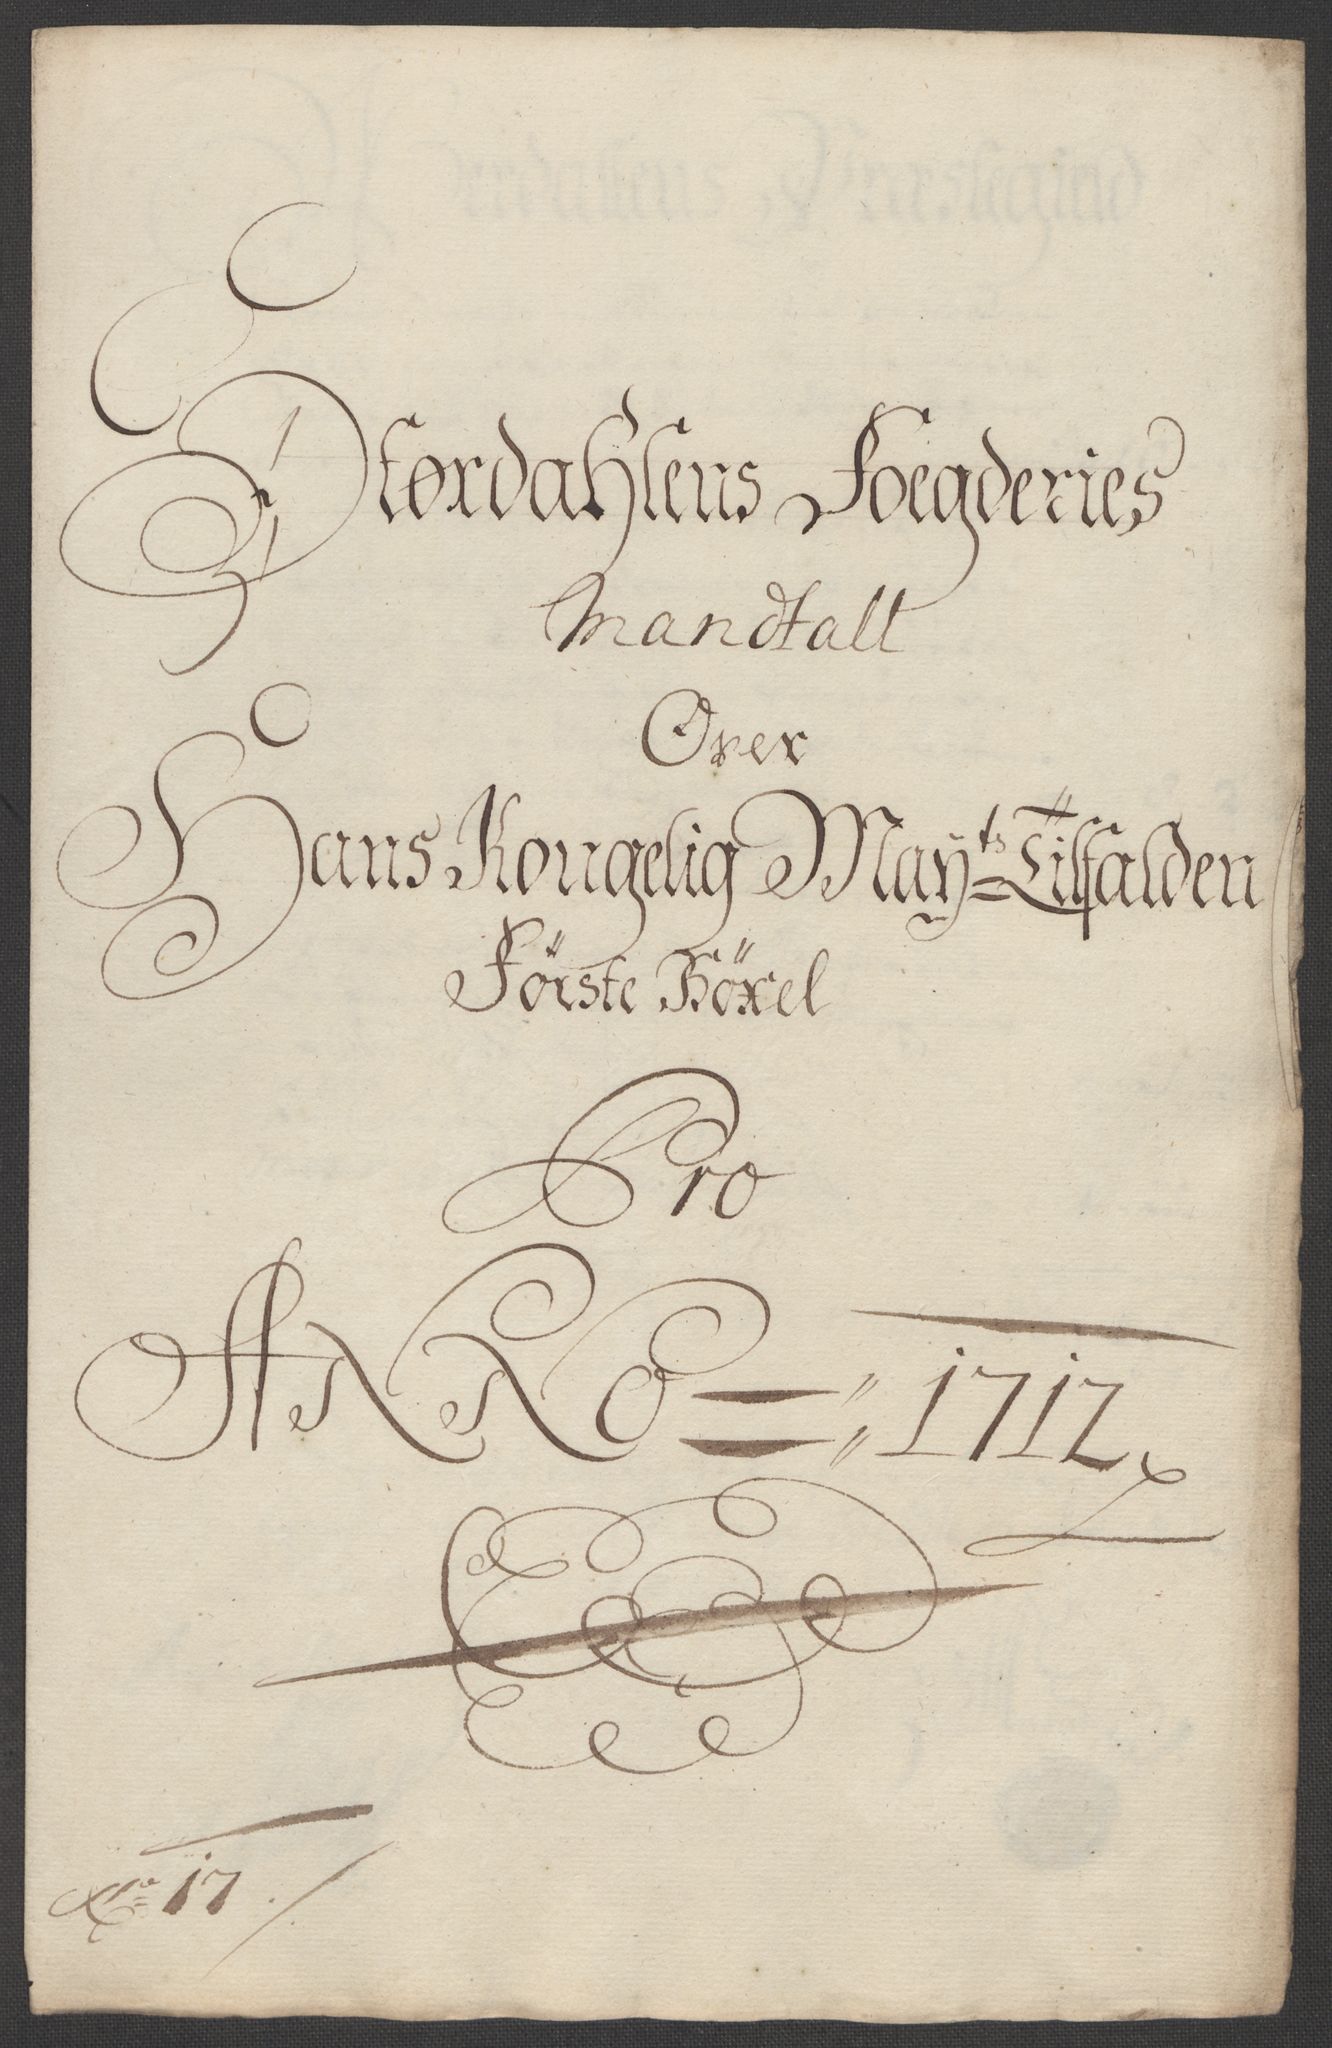 Størdahlens Foegderies
Mandtalt
Over
Hans Kongelig Mayts Tilfalden
Förste Böxel
Pro
ANNO = 1712
No 17